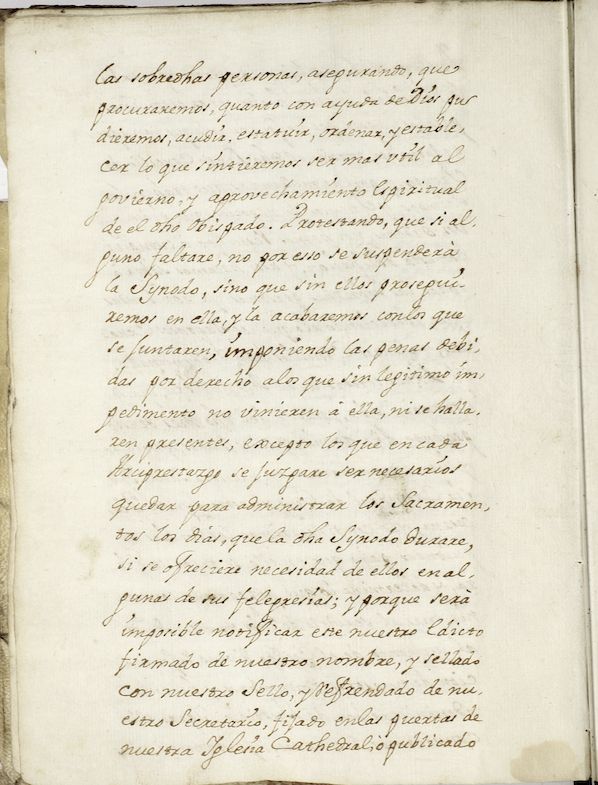 las sobredhas personas, asegurando, que
procuraremos, quanto con ayuda de Dios pu-
dieremos, acudir, estatuir, ordenar, y estable-
cer lo que sintieremos ser mas vtil al
govierno, y aprovechamiento Espiritual
de el dho Obispado. Protestando, que si al-
guno faltare, no por esso se suspenderà
la Synodo, sino que sin ellos prosegui-
remos en ella, y la acabaremos con los que
se juntaren, imponiendo las penas debi-
das por derecho a los que sin legitimo im-
pedimento no vinieren à ella, ni se halla-
ren presentes, excepto los que en cada
Arciprestazgo se juzgare ser necesarios
quedar para administrar los Sacramen-
tos los dias, que la dha Synodo durare,
si se ofreciere necesidad de ellos en al-
gunas de sus felegresias; y porque serà
imposible notificar este nuestro Edicto
firmado de nuestro nombre, y sellado
con nuestro Sello, y Refrendado de nu-
estro Secretario, fijado en las puertas de
nuestra Iglesia Cathedral, ò publicado